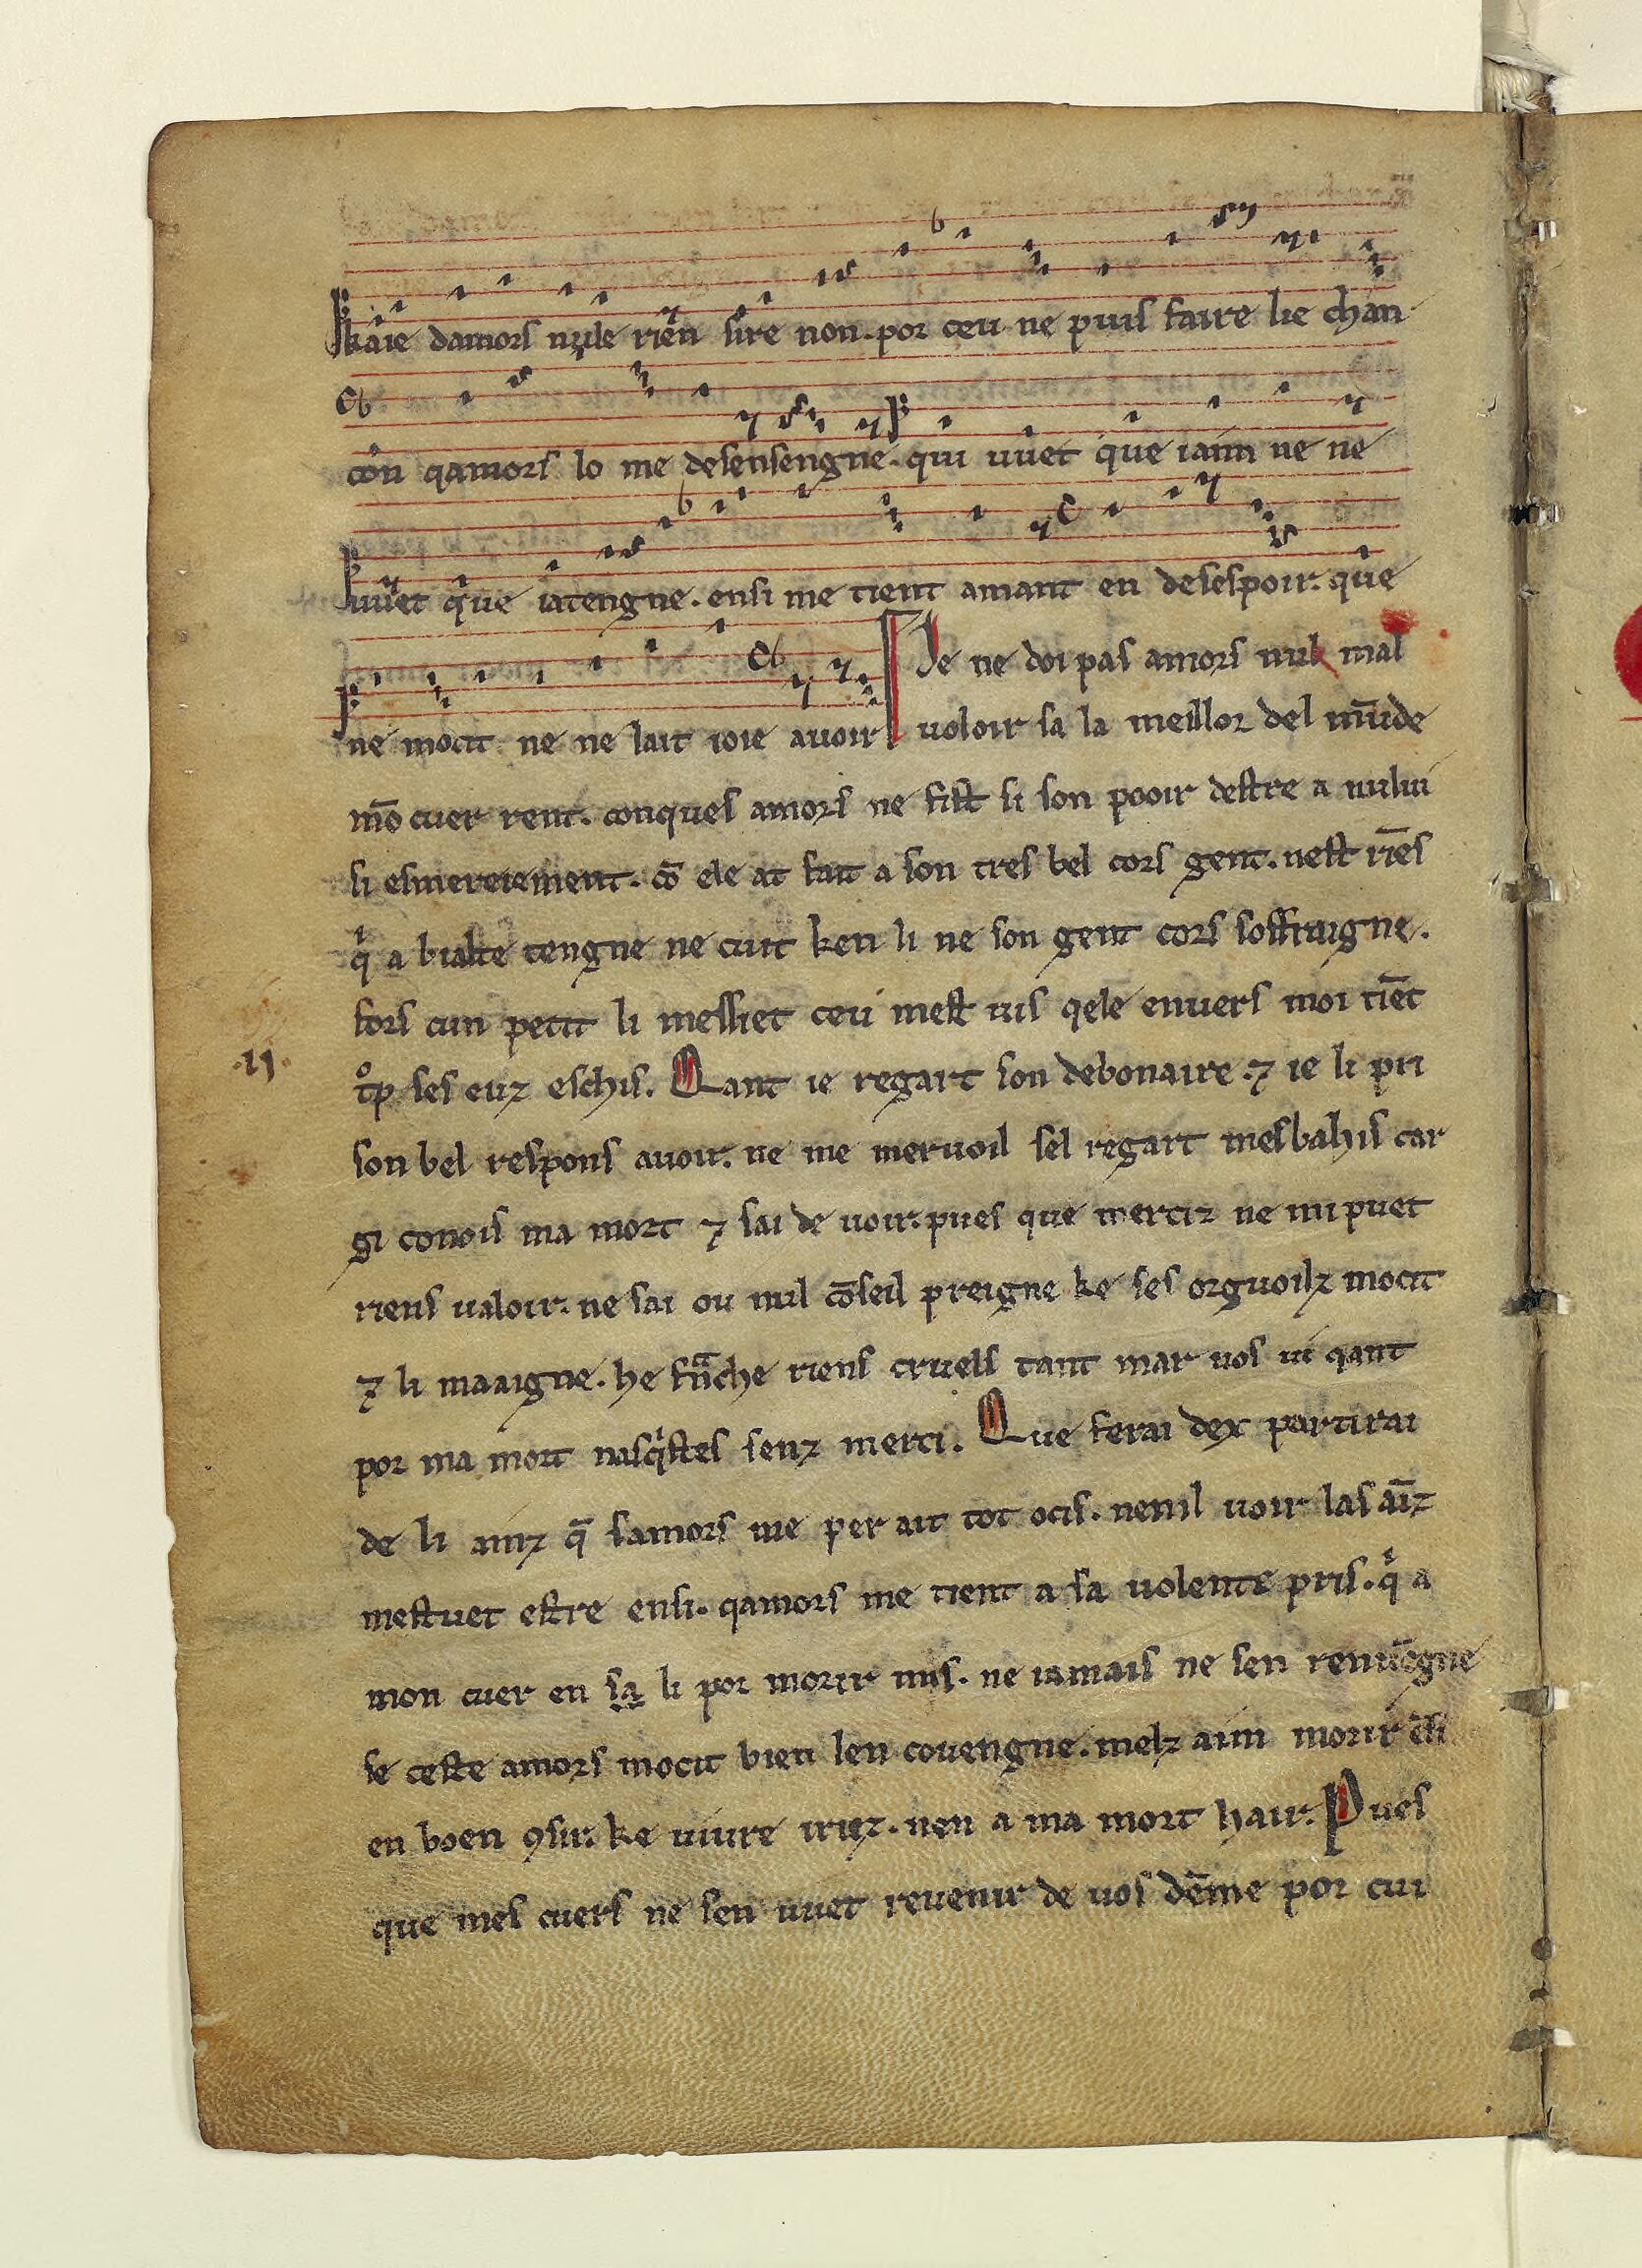 kaie damors nule rien sire non. por ceu ne puis faire lie chan
con qamors lo me desensengne. qui uuet que iaim ne ne
uuet que iatengne. ensi me tient amant en desespoir. que
ne mocit ne ne lait ioie auoir
Je ne doi pas amors nul mal
uoloir sa la meillor del mūde
mō cuer rent. conques amors ne fist si son pooir destre a nului
si esmereiement. cō ele at fait a son tres bel cors gent. nest riēs
qͥ a bialte tengne ne cuit ken li ne son gent cors soffraigne.
fors cun petit li messiet ceu mest uis qele enuers moi tiēt
.ij.
tͦp ses euz eschis. Qant ie regart son debonaire ⁊ ie li pri
son bel respons auoir. ne me meruoil sel regart mesbahis car
gi conois ma mort ⁊ sai de uoir. pues que merciz ne mi puet
riens ualoir. ne sai ou nul cōseil preigne ke ses orguoilz mocit
⁊ li maaigne. he frͣnche riens cruels tant mar uos ui qant
por ma mort nasqͥstes senz merci. Que ferai dex partirai
de li ainz q̄ samors me per ait tot ocis. nenil uoir las aīz
mestuet estre ensi. qamors me tient a sa uolente pris. qͥ a
mon cuer en sa li por morir mis. ne iamais ne sen reuiēgne
se ceste amors mocit bien len couengne. melz aim morir ēsi
en boen ꝯsir. ke uiure iriez. nen a ma mort hair. Pues
que mes cuers ne sen uuet reuenir de uos dēme por cui